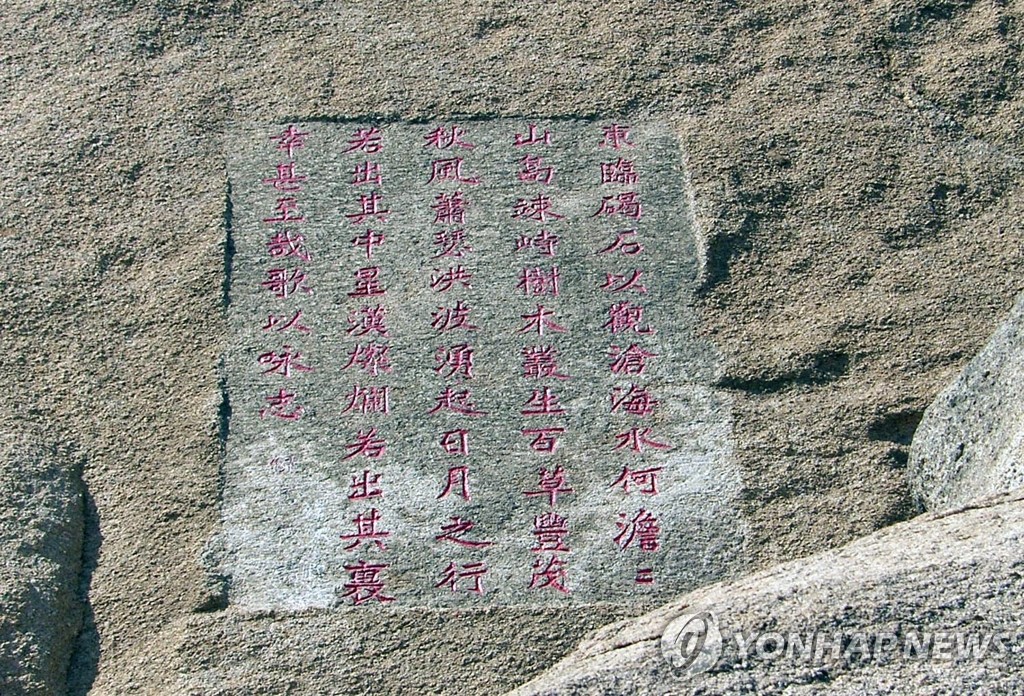 東臨碣石以觀滄海水何澹〻
山島竦峙樹木叢生百草豐茂
秋風蕭瑟洪波湧起日月之行
若出其中星漢燦爛若出其裏
幸甚至哉歌以咏志
YONHAP NEWS